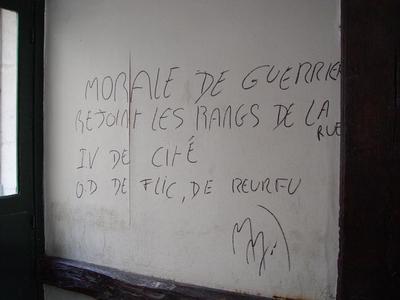 MORALE DE GUERRIER
REJOINT LES RANGS DE LA
RUE
IV DE CITÉ
O.D DE FLIC, DE REURFU